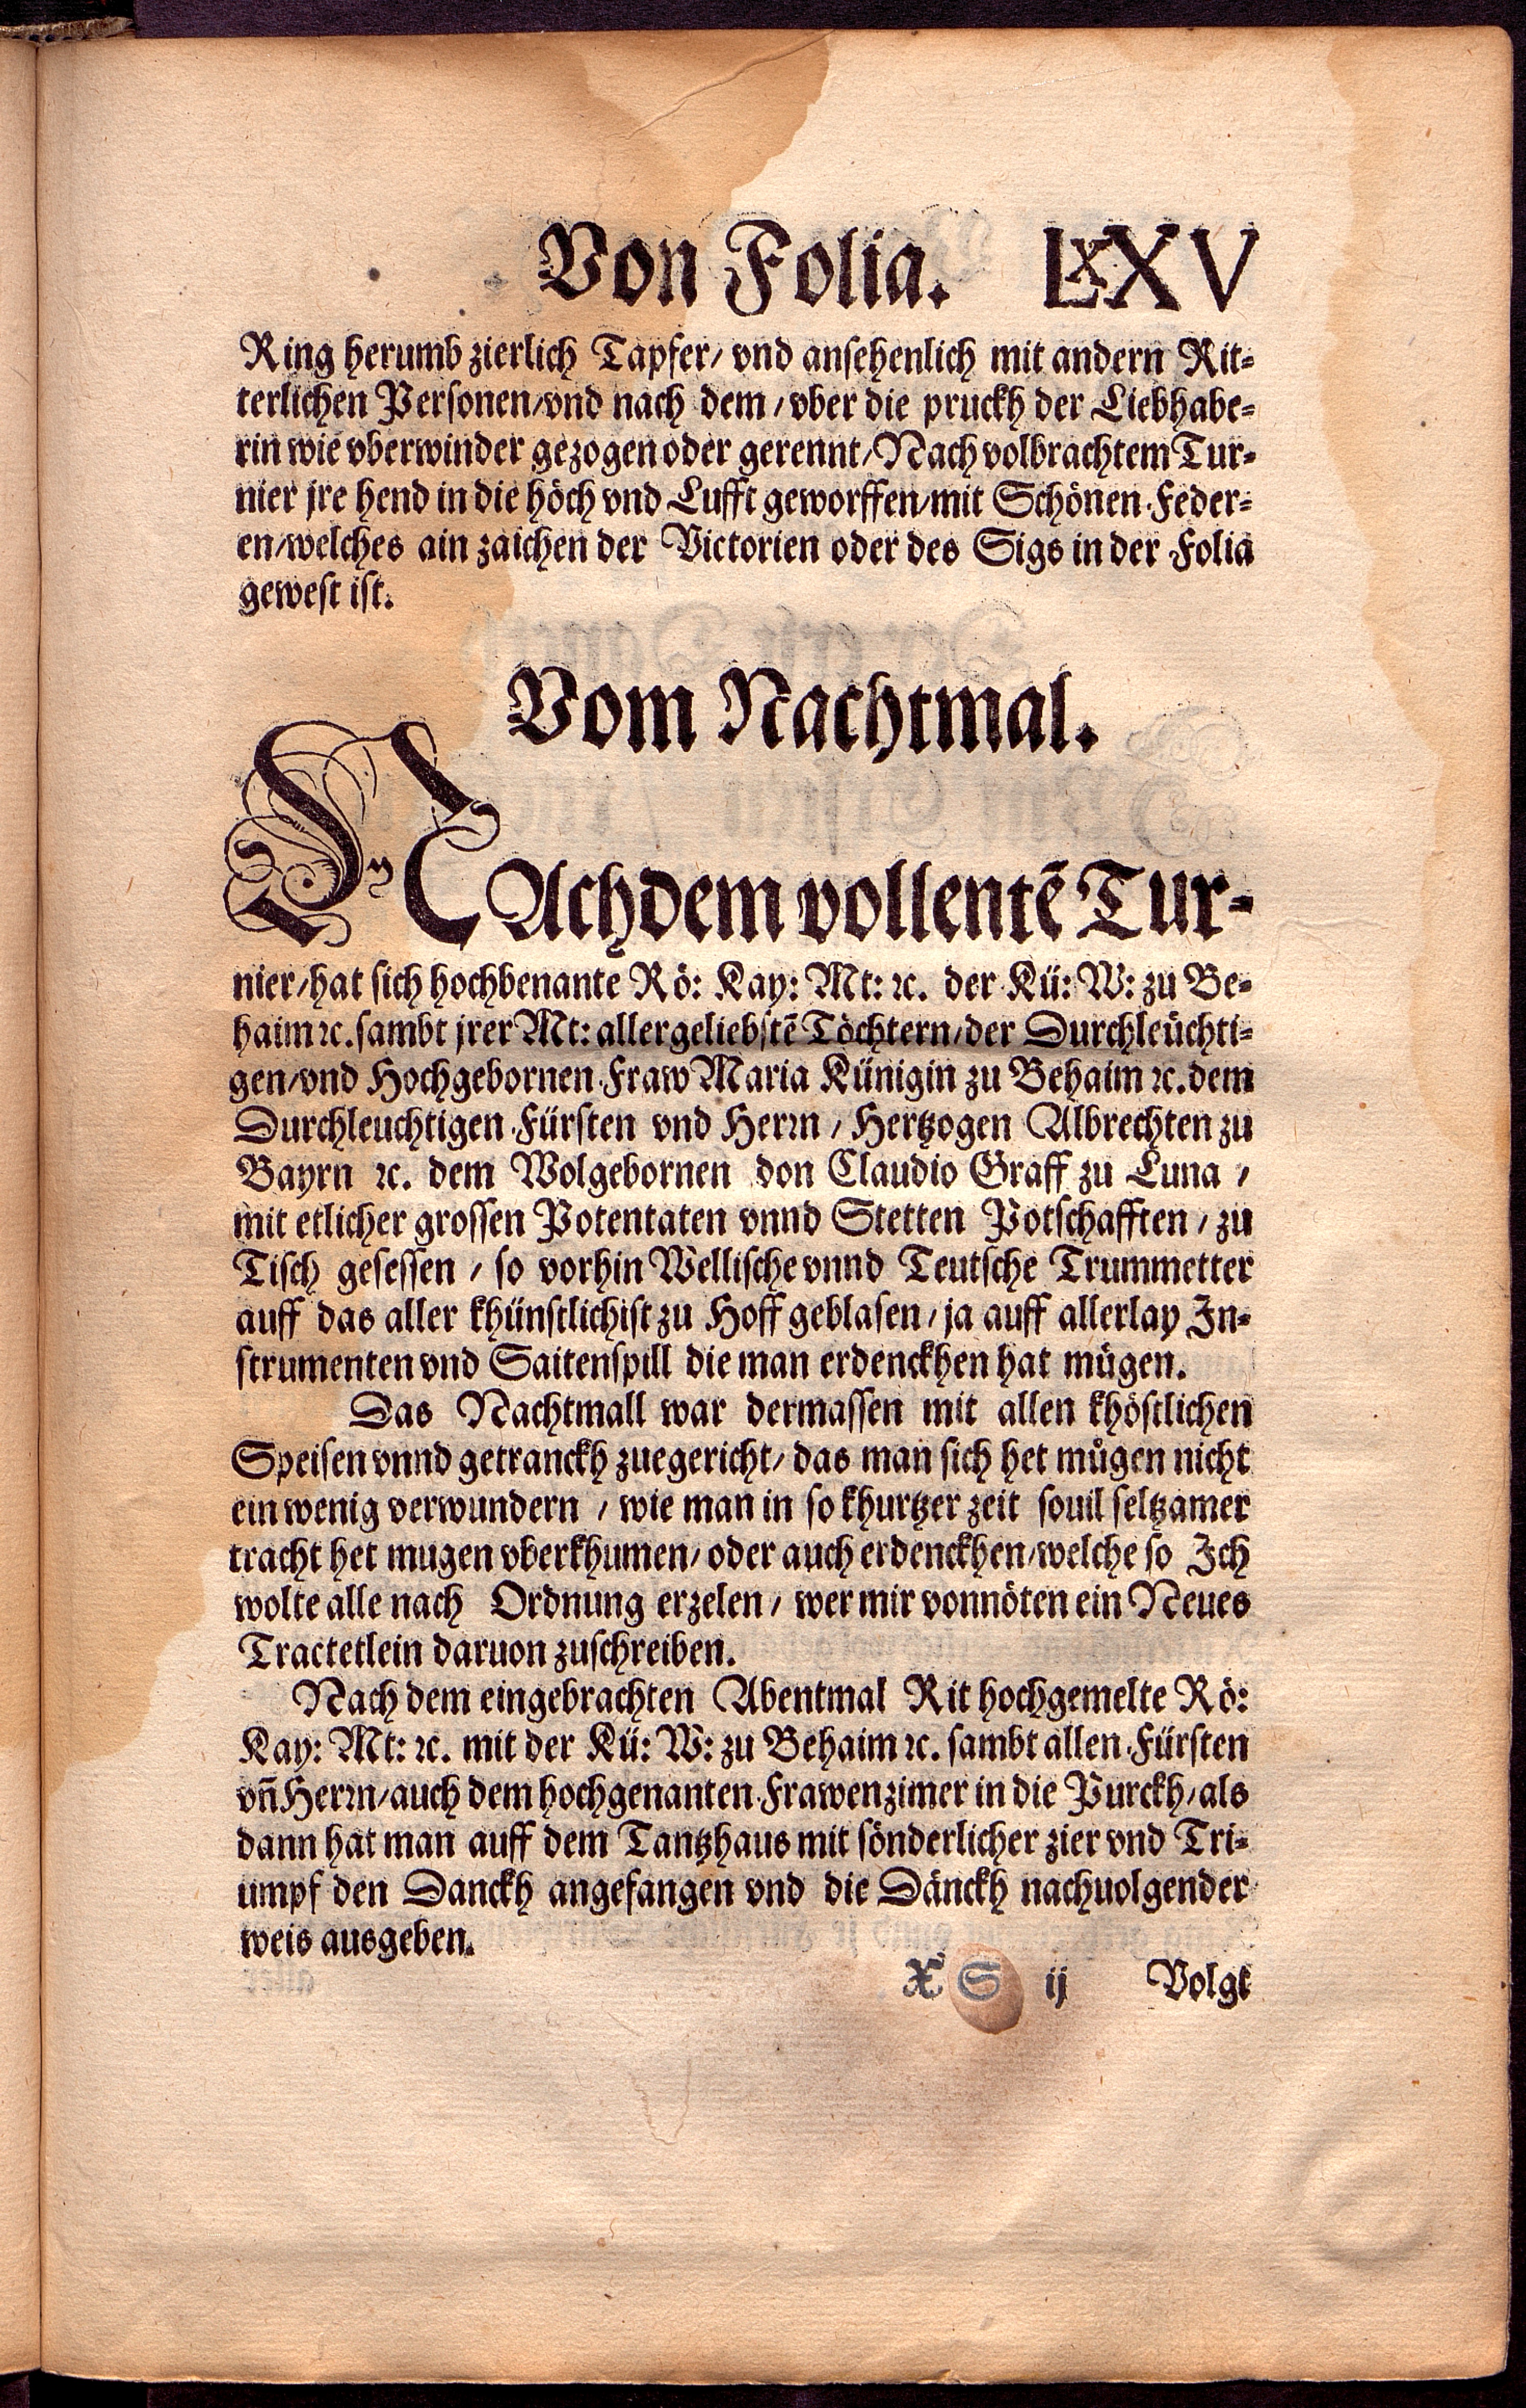 Von Folia. LXXV
Ring herumb zierlich Tapfer/ vnd ansehenlich mit andern Rit-
terlichen Personen/vnd nach dem/ vber die pruckh der Liebhabe-
rin wie vberwinder gezogen oder gerennt/ Nach volbrachtem Tur-
nier jre hend in die höch vnd Lufft geworffen/mit Schönen Feder-
en/welches ain zaichen der Victorien oder des Sigs in der Folia
gewest ist.
Vom Nachtmal.
NAchdem vollentē Tur-
nier/hat sich hochbenante Rö: Kay: Mt: ꝛc. der Kü: W: zu Be-
haim ꝛc. sambt jrer Mt: allergeliebstē Töchtern/der Durchleüchti-
gen/vnd Hochgebornen Fraw Maria Künigin zu Behaim ꝛc. dem
Durchleuchtigen Fürsten vnd Herrn/ Hertzogen Albrechten zu
Bayrn ꝛc. dem Wolgebornen don Claudio Graff zu Luna/
mit etlicher grossen Potentaten vnnd Stetten Potschafften/ zu
Tisch gesessen/ so vorhin Wellische vnnd Teutsche Trummetter
auff das aller khünstlichist zu Hoff geblasen/ ja auff allerlay In-
strumenten vnd Saitenspill die man erdenckhen hat mügen.
Das Nachtmall war dermassen mit allen khöstlichen
Speisen vnnd getranckh zuegericht/ das man sich het mügen nicht
ein wenig verwundern/ wie man in so khurtzer zeit souil seltzamer
tracht het mugen vberkhumen/ oder auch erdenckhen/welche so Ich
wolte alle nach Ordnung erzelen/ wer mir vonnöten ein Neues
Tractetlein daruon zuschreiben.
Nach dem eingebrachten Abentmal Rit hochgemelte Rö:
Kay: Mt: ꝛc. mit der Kü: W: zu Behaim ꝛc. sambt allen Fürsten
vn̄ Herrn/auch dem hochgenanten Frawenzimer in die Purckh/als
dann hat man auff dem Tantzhaus mit sönderlicher zier vnd Tri-
umpf den Danckh angefangen vnd die Dänckh nachuolgender
weis ausgeben.
X S ij Volgt